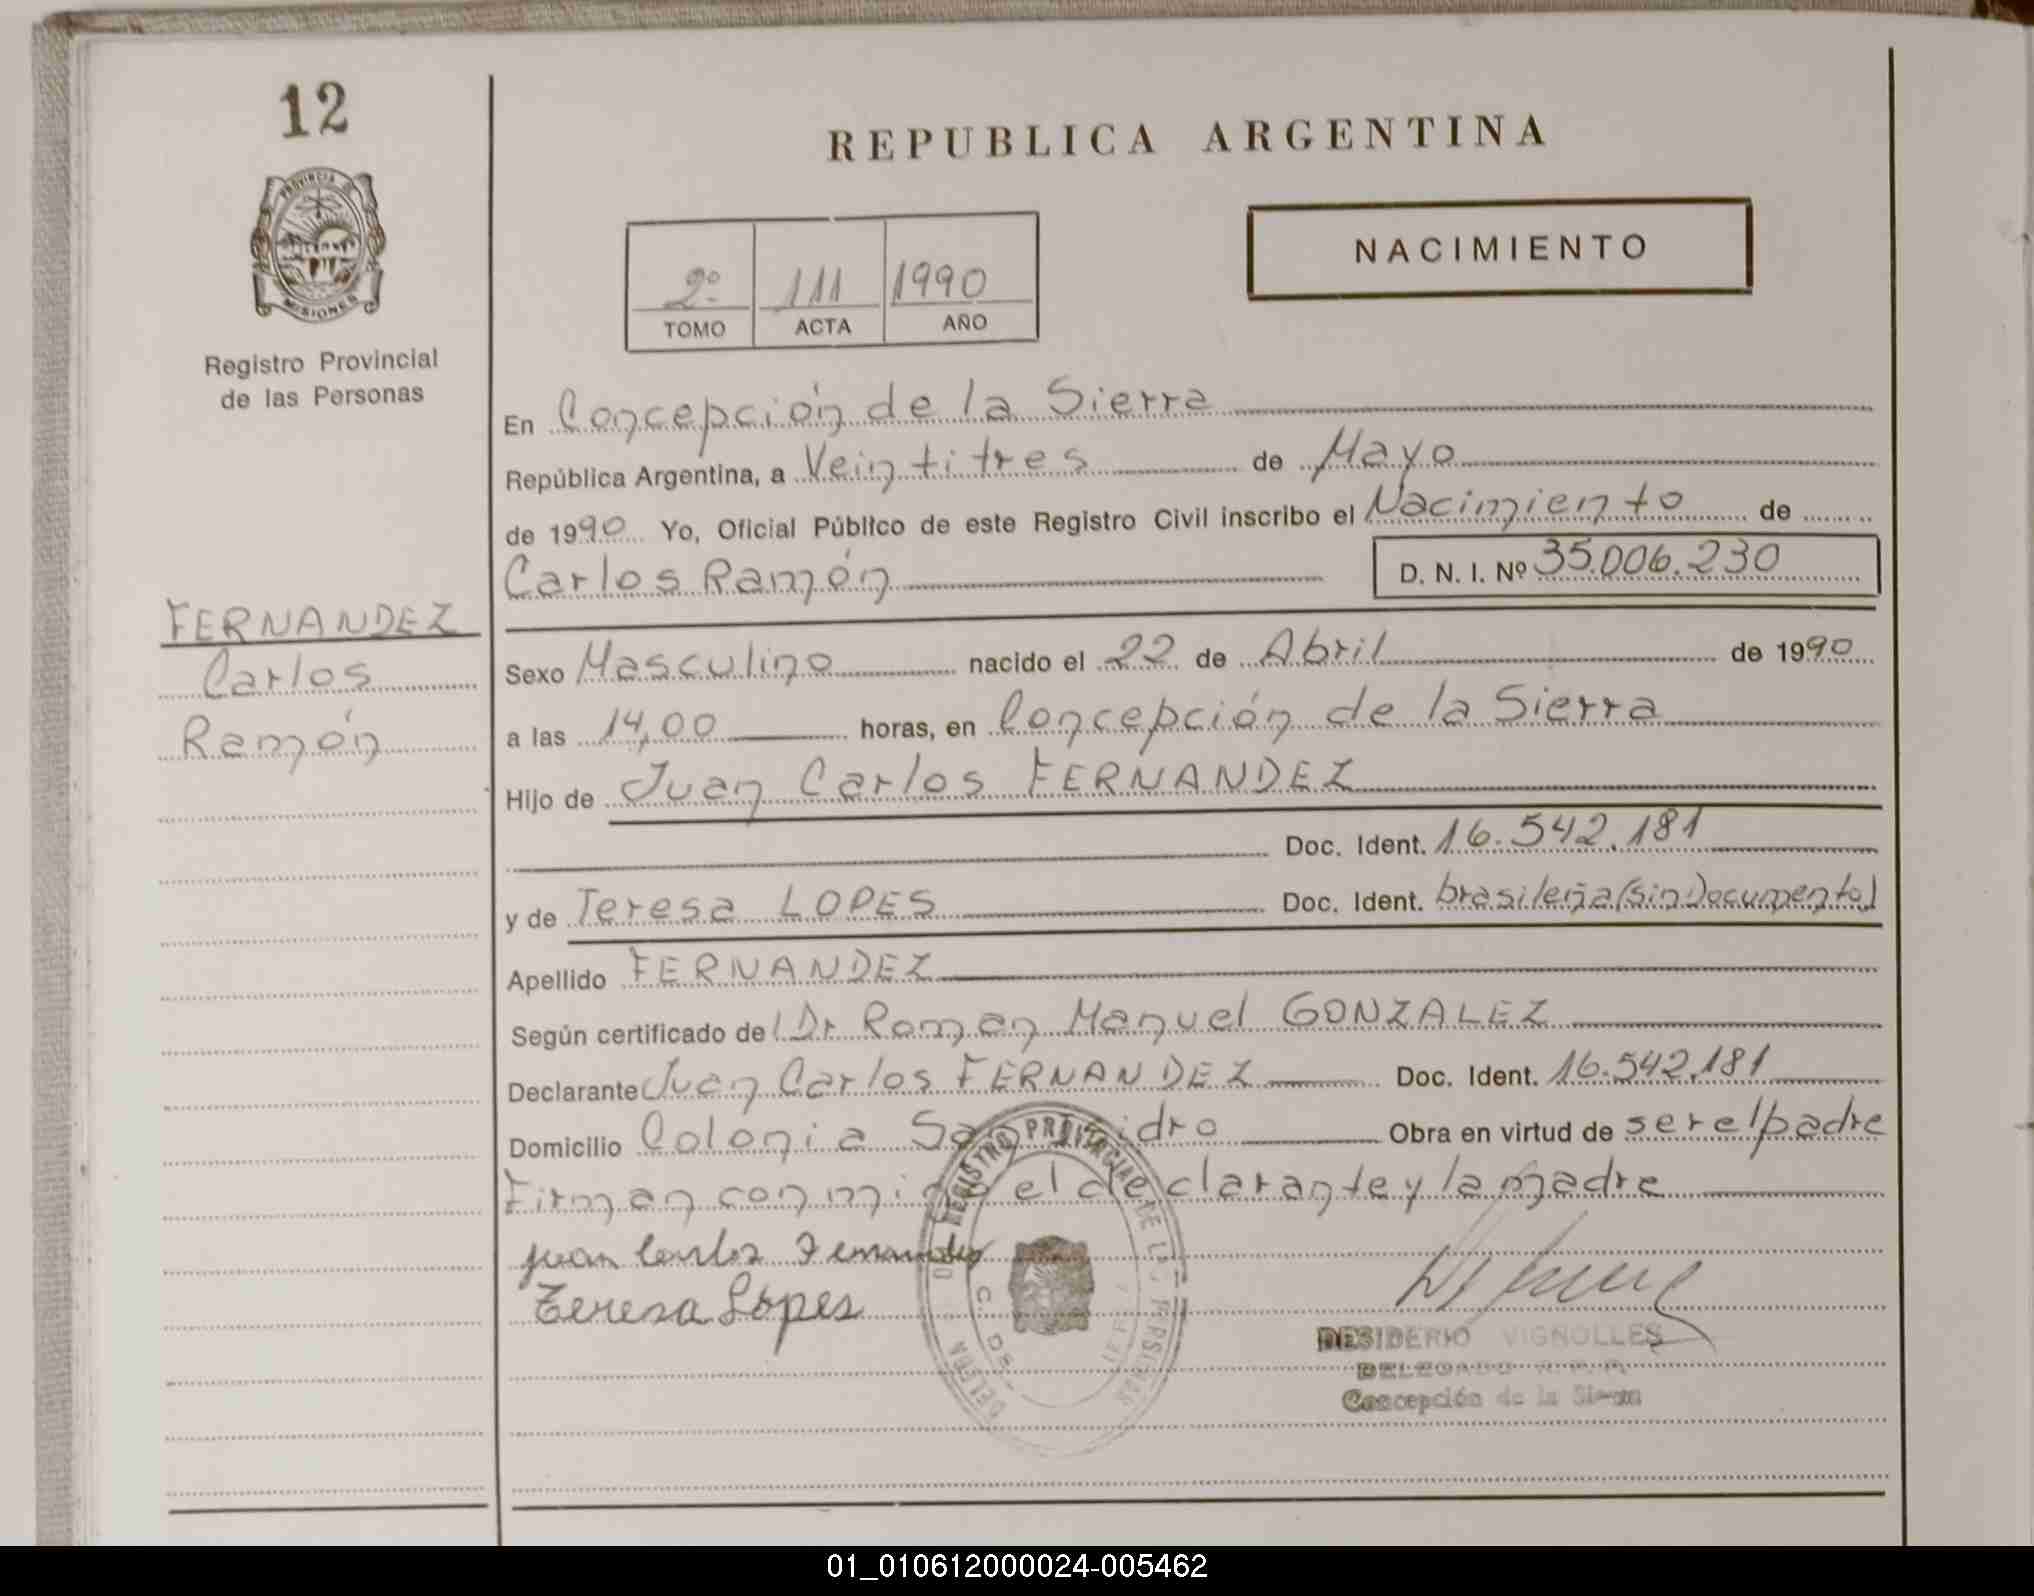 12
PROVINCIA DE
MISIONES
Registro Provincial
de las Personas
FERNANDEZ
Carlos
Ramón
REPUBLICA ARGENTINA
NACIMIENTO
2º 111 1990
TOMO ACTA AÑO
En Concepción de la Sierra
República Argentina, a Veintitres de Mayo
de 1990 Yo, Oficial Público de este Registro Civil inscribo el Nacimiento de
Carlos Ramón D. N. I. Nº 35.006.230
Sexo Masculino nacido el 22 de Abril de 1990
a las 14,00 horas, en Concepción de la Sierra
Hijo de Juan Carlos FERNANDEZ
Doc. Ident. 16.542.181
y de Teresa LOPES Doc. Ident. brasileña (sin Documento)
Apellido FERNANDEZ
Según certificado del Dr Roman Manuel GONZALEZ
Declarante Juan Carlos FERNANDEZ Doc. Ident. 16.542.181
Domicilio Colonia San Isidro Obra en virtud de ser el padre
Firman conmigo el declarante y la madre
Juan Carlos Fernandez
Teresa Lopes
REGISTRO PROVINCIAL DE LAS PERSONAS
DESIDERIO VIGNOLLES
DELEGADO R.P.P.
Concepción de la Sierra
01_010612000024-005462